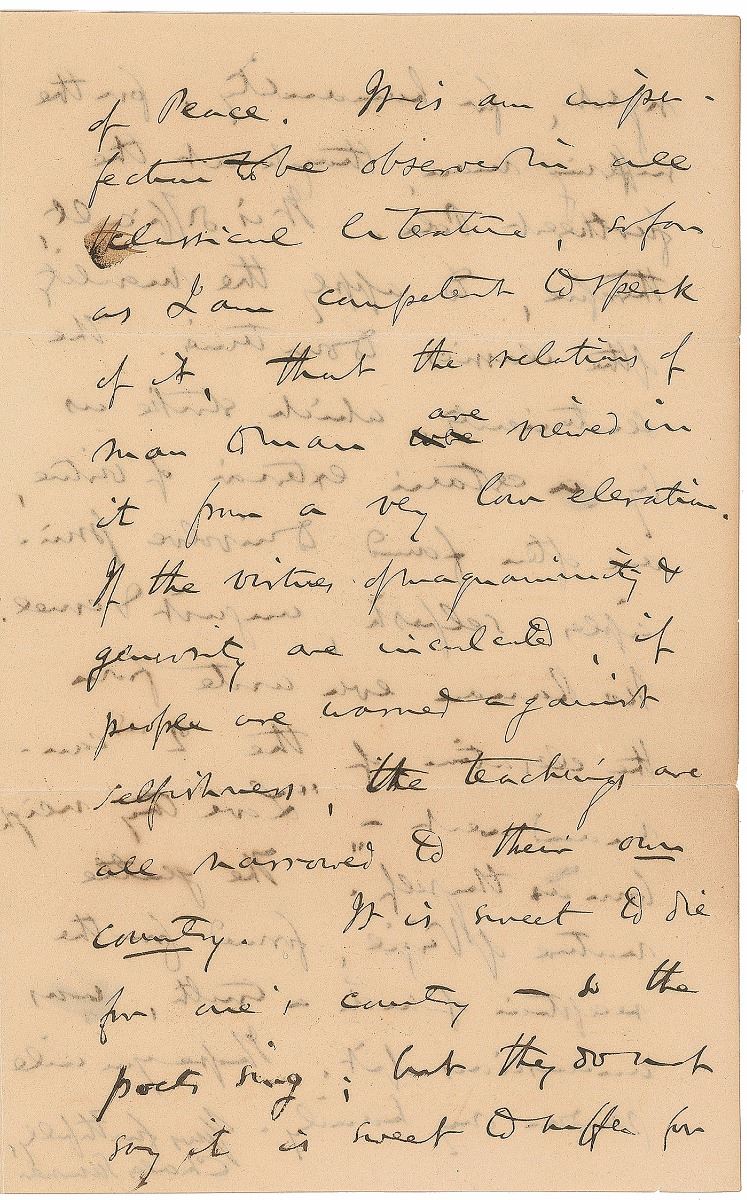 of Peace. It is an imper-
fection to be observed in all
classical literature, so far
as I am competent to speak
of it, that the relations of
man to man are viewed in
it from a very low elevation.
If the virtues of magnanimity &
generosity are inculcated, if
people are warned against
selfishness, the teachings are
all narrowed to their own
country. It is sweet to die
for one's country – so the
poets sing; but they do not
say it is sweet to suffer for